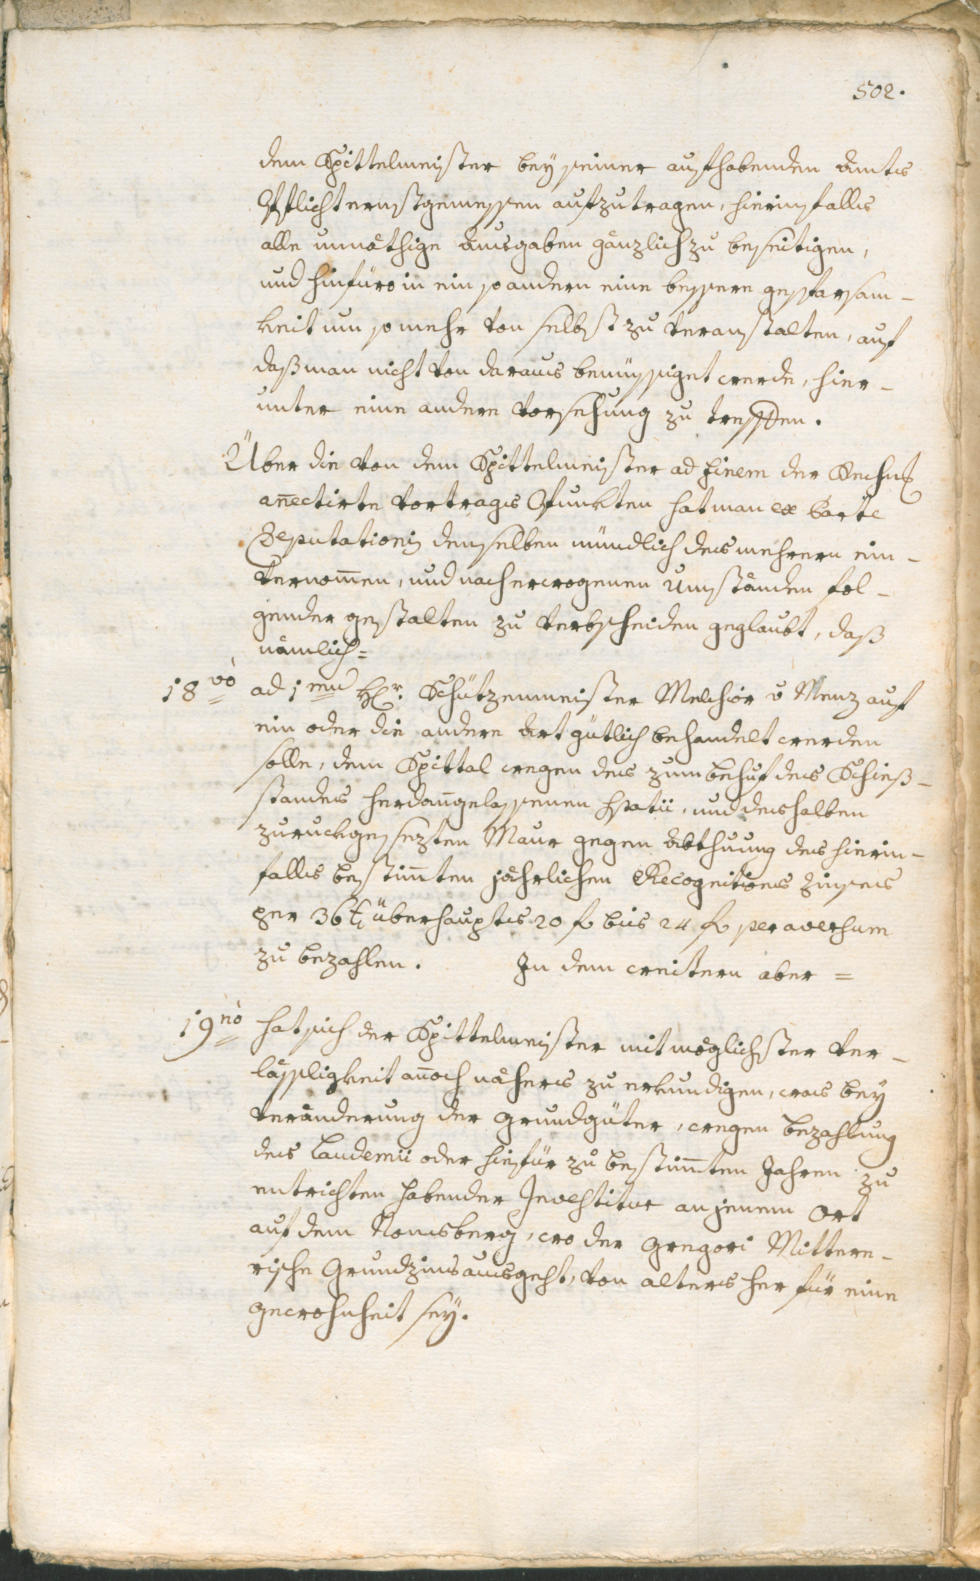 502.
dem Spittelmeister bey seiner aufhabenden Amts
Pflicht ernstgemessen aufzutragen, hierinfalls
alle unnöthige Ausgaben gänzlich zu beseitigen,
und hinfüro in ein so andern eine bessere gesparsam-
keit um so mehr von selbst zu veranstalten, auf
daß man nicht von daraus bemüssiget werde, hier-
unter eine andere Vorsehung zu treffen.
Über die von dem Spittelmeister ad finem der Rechnug
an̄ectirte Vortrags Punkten hat man ex Parte
Deputationis denselben mündlich des mehrern ein-
vernom̄en, und nach erwogenen Umständen fol-
gender gestalten zu verbscheiden geglaubt, daß
nämlich=
18vo ad 1mu H[er]r. Schützenmeister Melchior v Menz auf
ein oder die andere Art gütlich behandelt werden
solle, dem Spittal wegen des zum behuf des Schieß-
standes herdan̄gelassenen Spatii, und deshalben
zuruckgesezten Maur gegen Abthuung des hierin-
falls bestim̄ten jährlichen Recognitions Zinses
per 36 x überhaupts 20 f bis 24 f per aversum
zu bezahlen. In dem weitern aber =
19no hat sich der Spittelmeister mit möglichster Ver-
lässligkeit an̄och nähers zu erkundigen, was bey
veränderung der Grundgüter, wegen bezahlung
des Laudemii oder hiefür zu bestim̄ten Jahren zu
entrichten habender Investitur an jenem Ort
auf dem Nonsberg, wo der Gregori Mittere-
rische Grundzins ausgeht, von alters her für eine
gewohnheit sey.